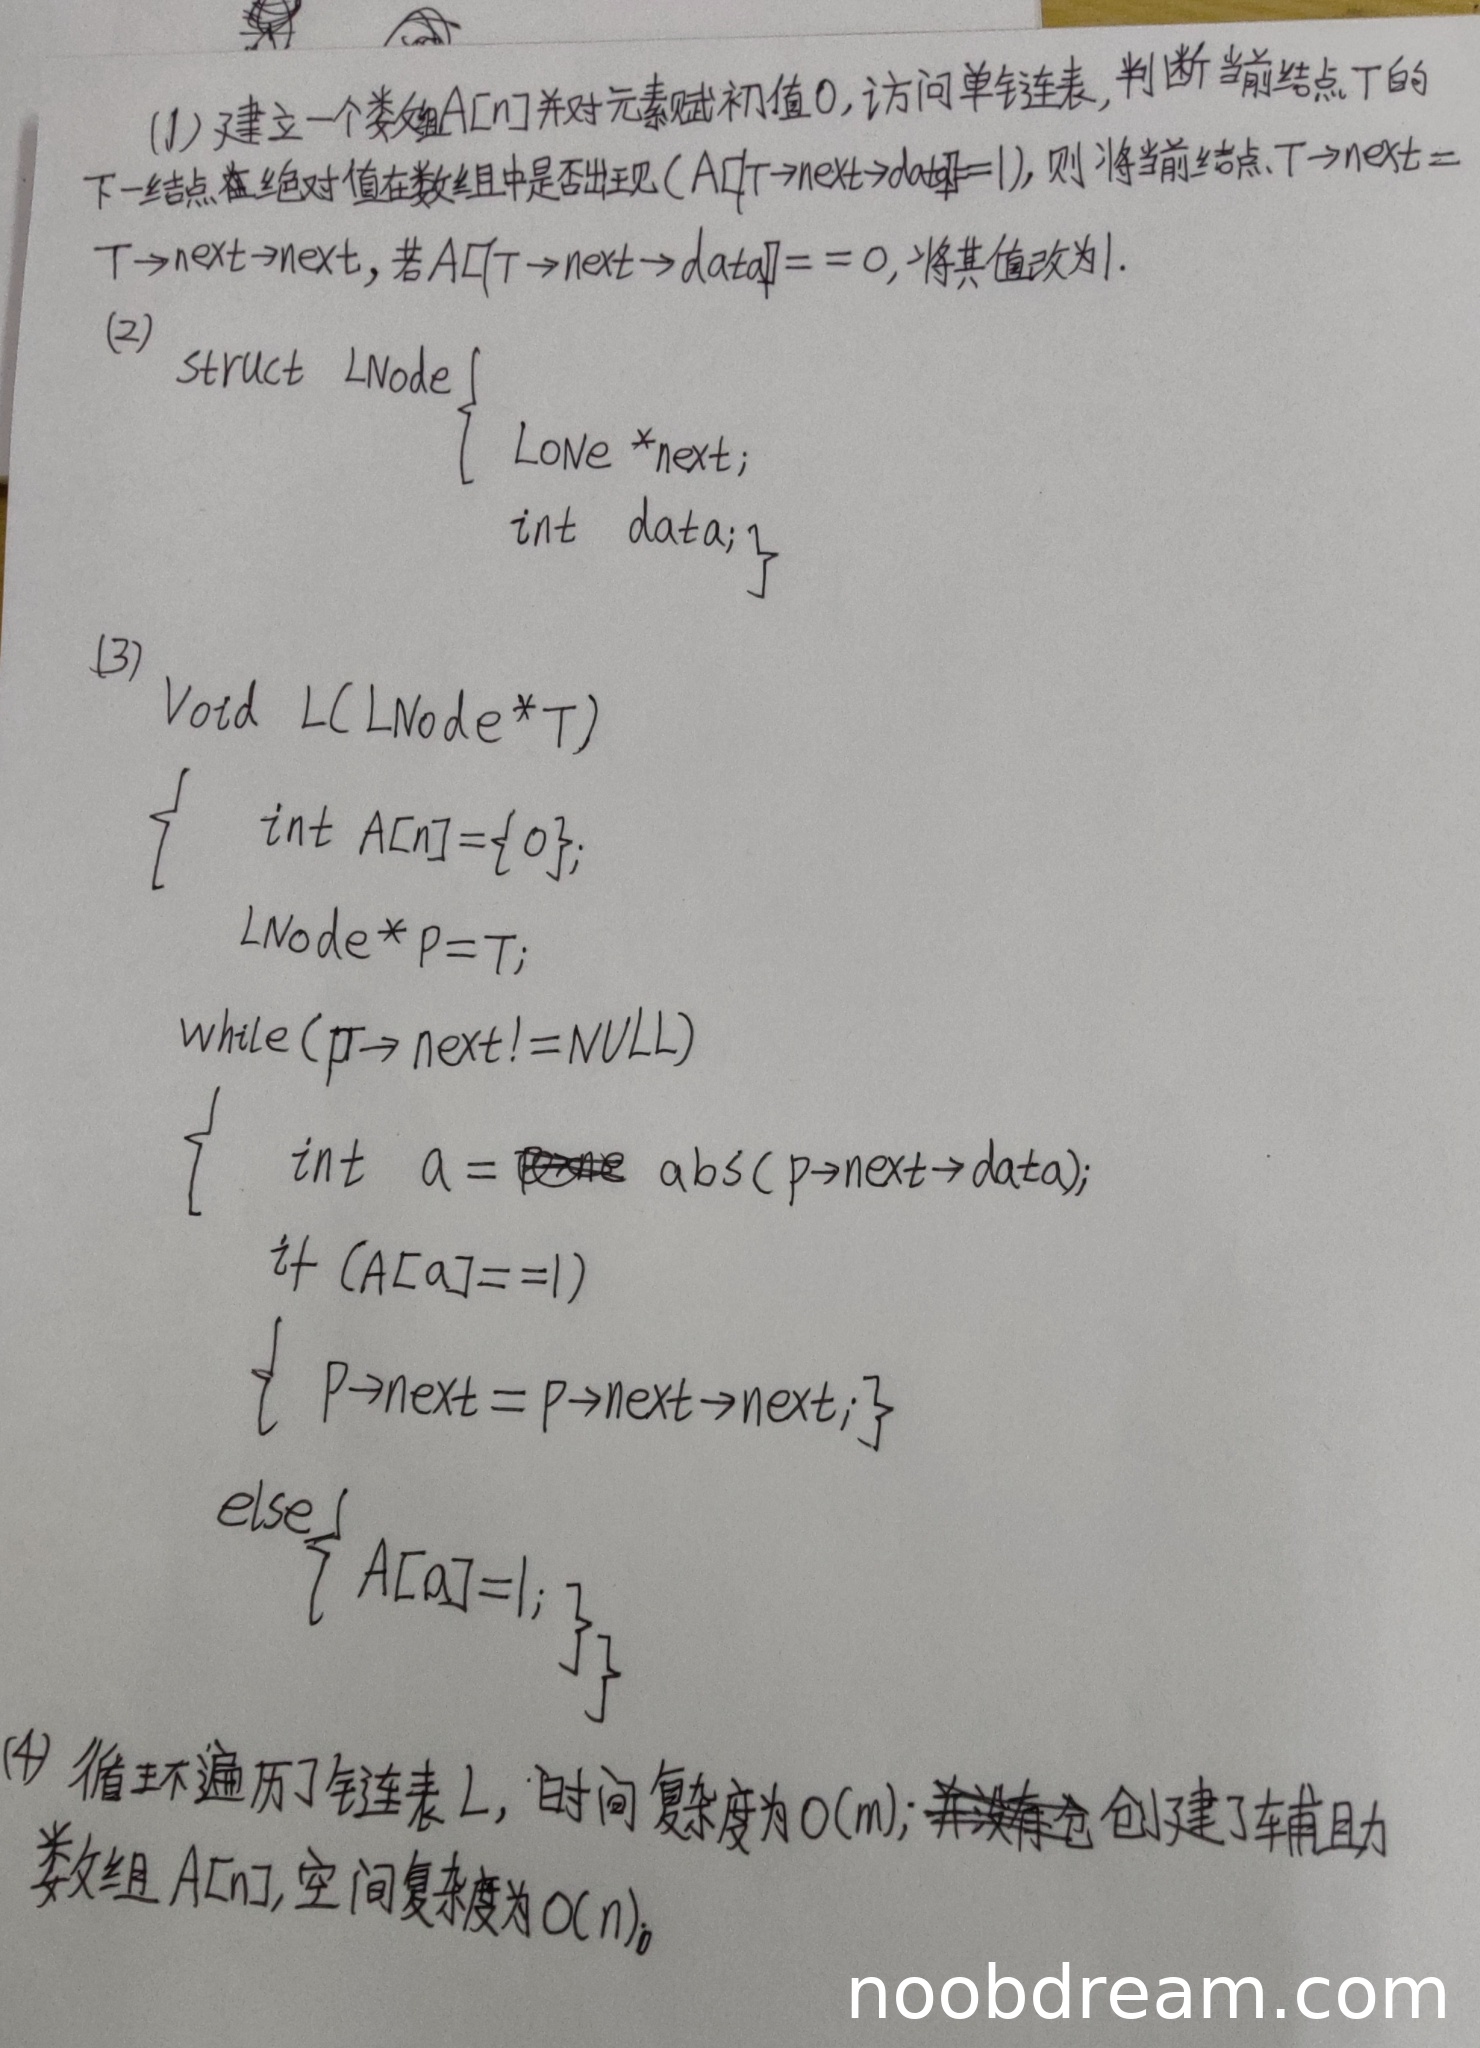 (1) 建立一个数组A[n]并对元素赋初值0,访问单链表,判断当前结点T的
下一结点绝对值在数组中是否出现(A[|T→next→data|]==1),则将当前结点T→next=
T→next→next,若A[|T→next→data|]==0,将其值改为1.
(2)
struct LNode{
LoNe *next;
int data;}
(3)
Void L(LNode*T)
{ int A[n]={0};
LNode*P=T;
while(p→next!=NULL)
{ int a= abs(p→next→data);
if (A[a]==1)
{ P→next=P→next→next;}
else
{ A[a]=1; }
}
(4) 循环遍历了链表L,时间复杂度为O(m); 创建了辅助
数组A[n],空间复杂度为O(n)。
noobdream.com